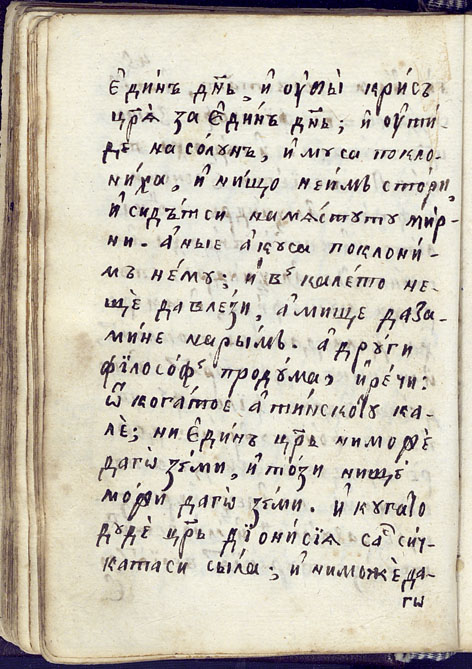 є҆ди́нъ дн҃ь, и҆ ѹ҆ми̇̀ кри́съ
цр҃ѧ̀ за є҆ди́нъ дн҃ь; и҆ ѹ҆ти́-
де на со́лунъ, и҆ му са покло-
ни́ха, и҆ ни́що не и́мъ сто́ри,
и҆ сидѣ́тси на мѧ́стуту ми́р-
ни. а҆ ные а҆ку са поклони́-
мъ не́му; и҆ въ кале́то не-
щѐ да влѣ́зи, а҆ми ще да за-
ми́не на ры́мъ. а҆ дру́ги
фїлосо́фъ проду́ма, и҆ ре́чи:
ѿ кога́то е а҆ти́нскоту ка-
лѐ; ни є҆ди́нъ цр҃ь ни мо́же̑
да гѡ зе́ми, и҆ то́зи нищѐ
мо́жи да гѡ зе́ми. и҆ кугато
дудѐ цр҃ь дїони́сїѧ са си́ч-
ката си сы́ла; и҆ ни можѐ да-
гѡ